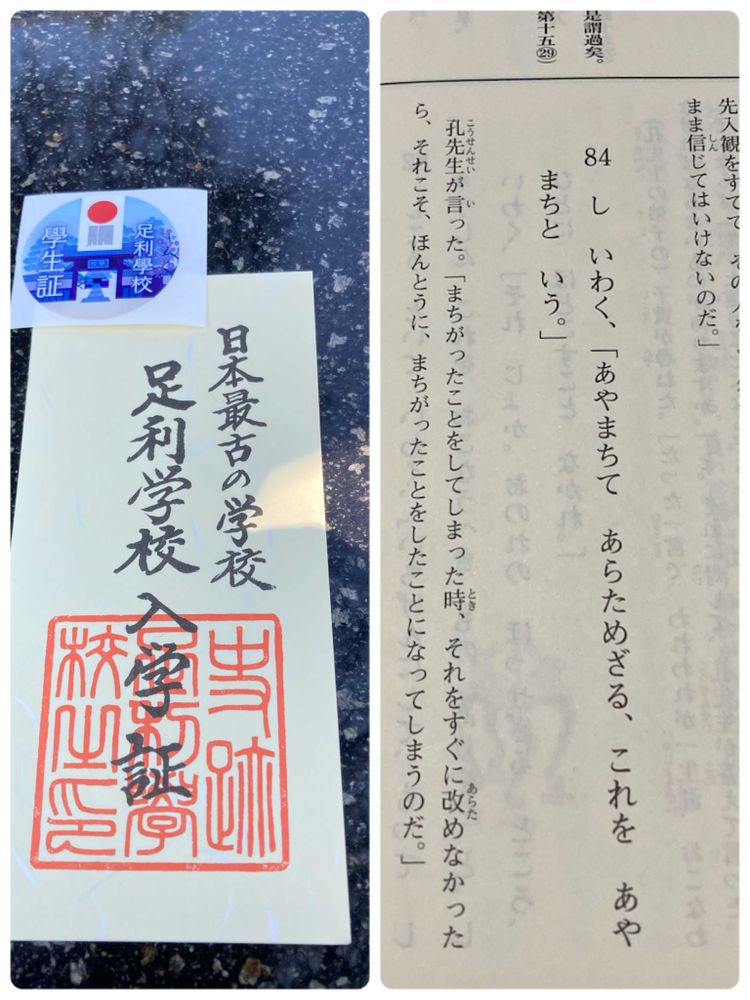 足利學校
學生証
日本最古の学校
足利学校 入学証
史跡
足利学
校之印
是謂過矣。
第十五㉙）
先入観をすてて、その人
しん
まま信じてはいけないのだ。」
84 し いわく、「あやまちて あらためざる、これを あや
まちと いう。」
こうせんせい い とき あらた
孔先生が言った。「まちがったことをしてしまった時、それをすぐに改めなかった
ら、それこそ、ほんとうに、まちがったことをしたことになってしまうのだ。」